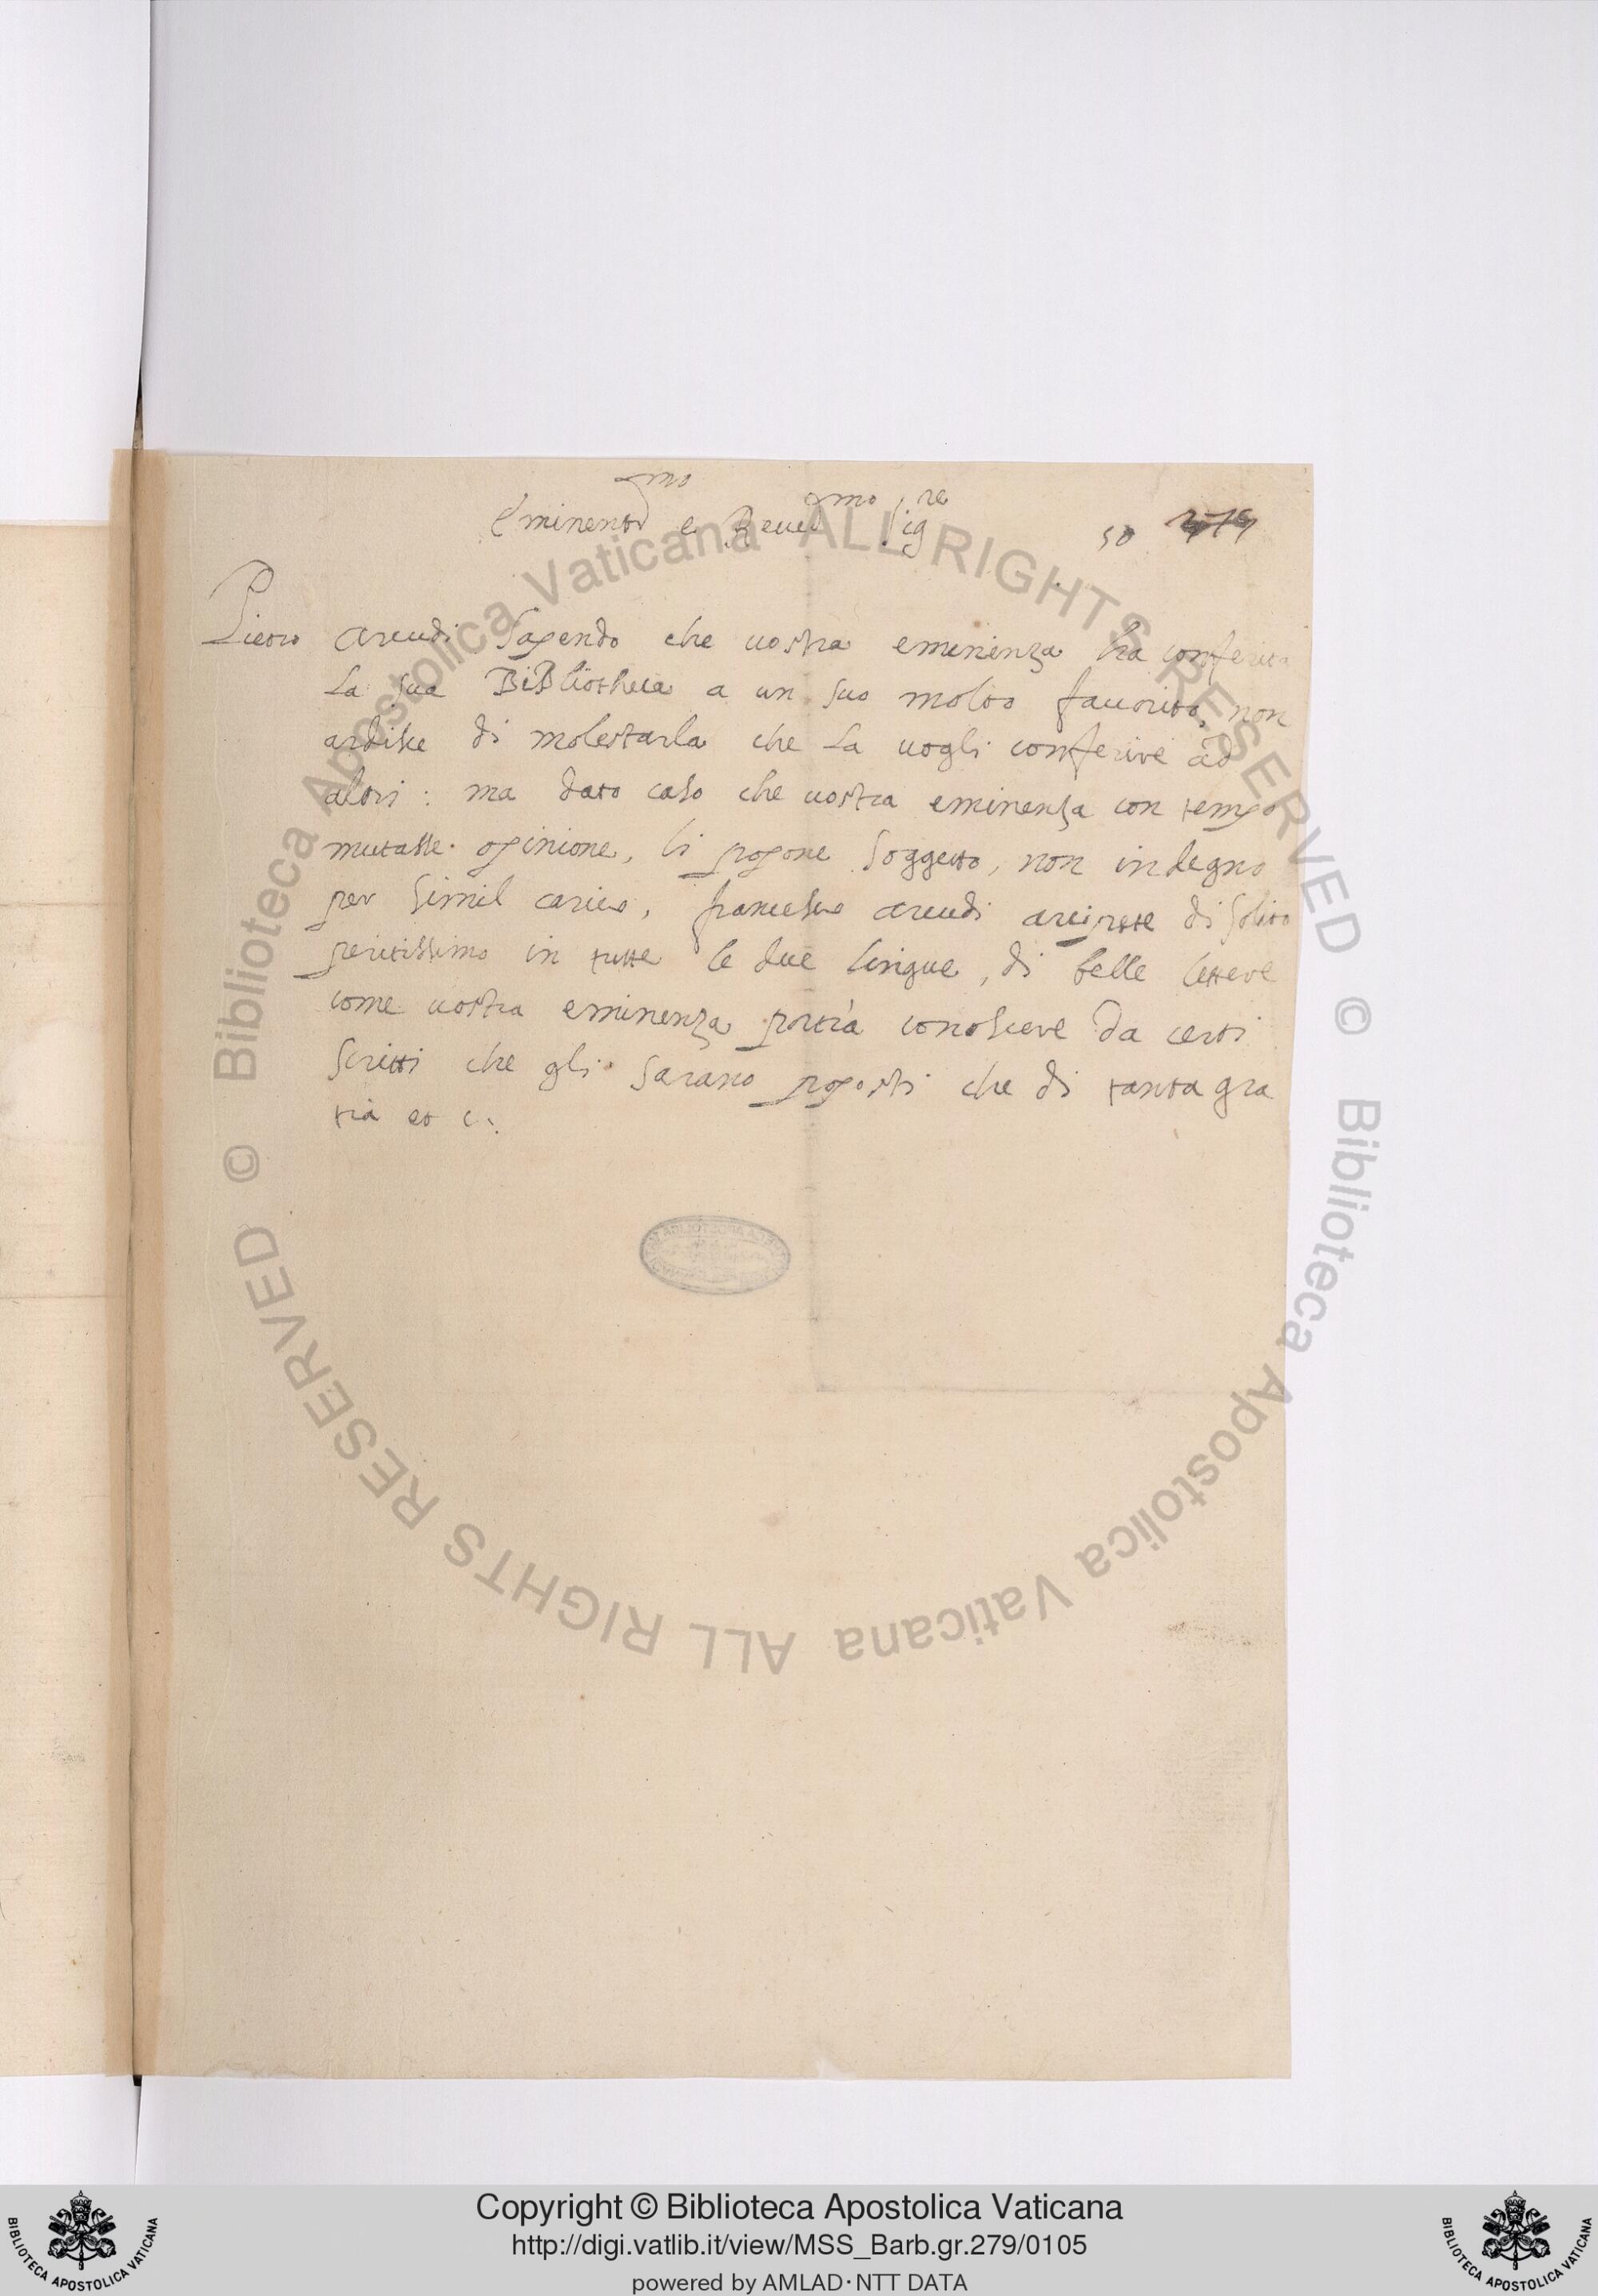 Eminentmo e Reuermo Sigre
50 279
Pietro arcudi sapendo che uostra eminenza ha conferita
La sua BiBliotheca a un suo molto fauorito, non
ardisce di molestarla che La uogli conferire ad
altri: ma dato caso che uostra eminenza con tempo
mutasse opinione, li propone soggetto, non indegno
per simil carico, francesco arcudi arciprete di solito
peritissimo in tutte le due lingue, di belle lettere
come uostra eminenza potrà conoscere da certi
scritti che gli sarano proposti che di tanta gra
tia et c.
Biblioteca Apostolica Vaticana ALL RIGHTS RESERVED ©
Biblioteca Apostolica Vaticana ALL RIGHTS RESERVED ©
Copyright © Biblioteca Apostolica Vaticana
http://digi.vatlib.it/view/MSS_Barb.gr.279/0105
powered by AMLAD·NTT DATA
BIBLIOTECA APOSTOLICA VATICANA
BIBLIOTECA APOSTOLICA VATICANA